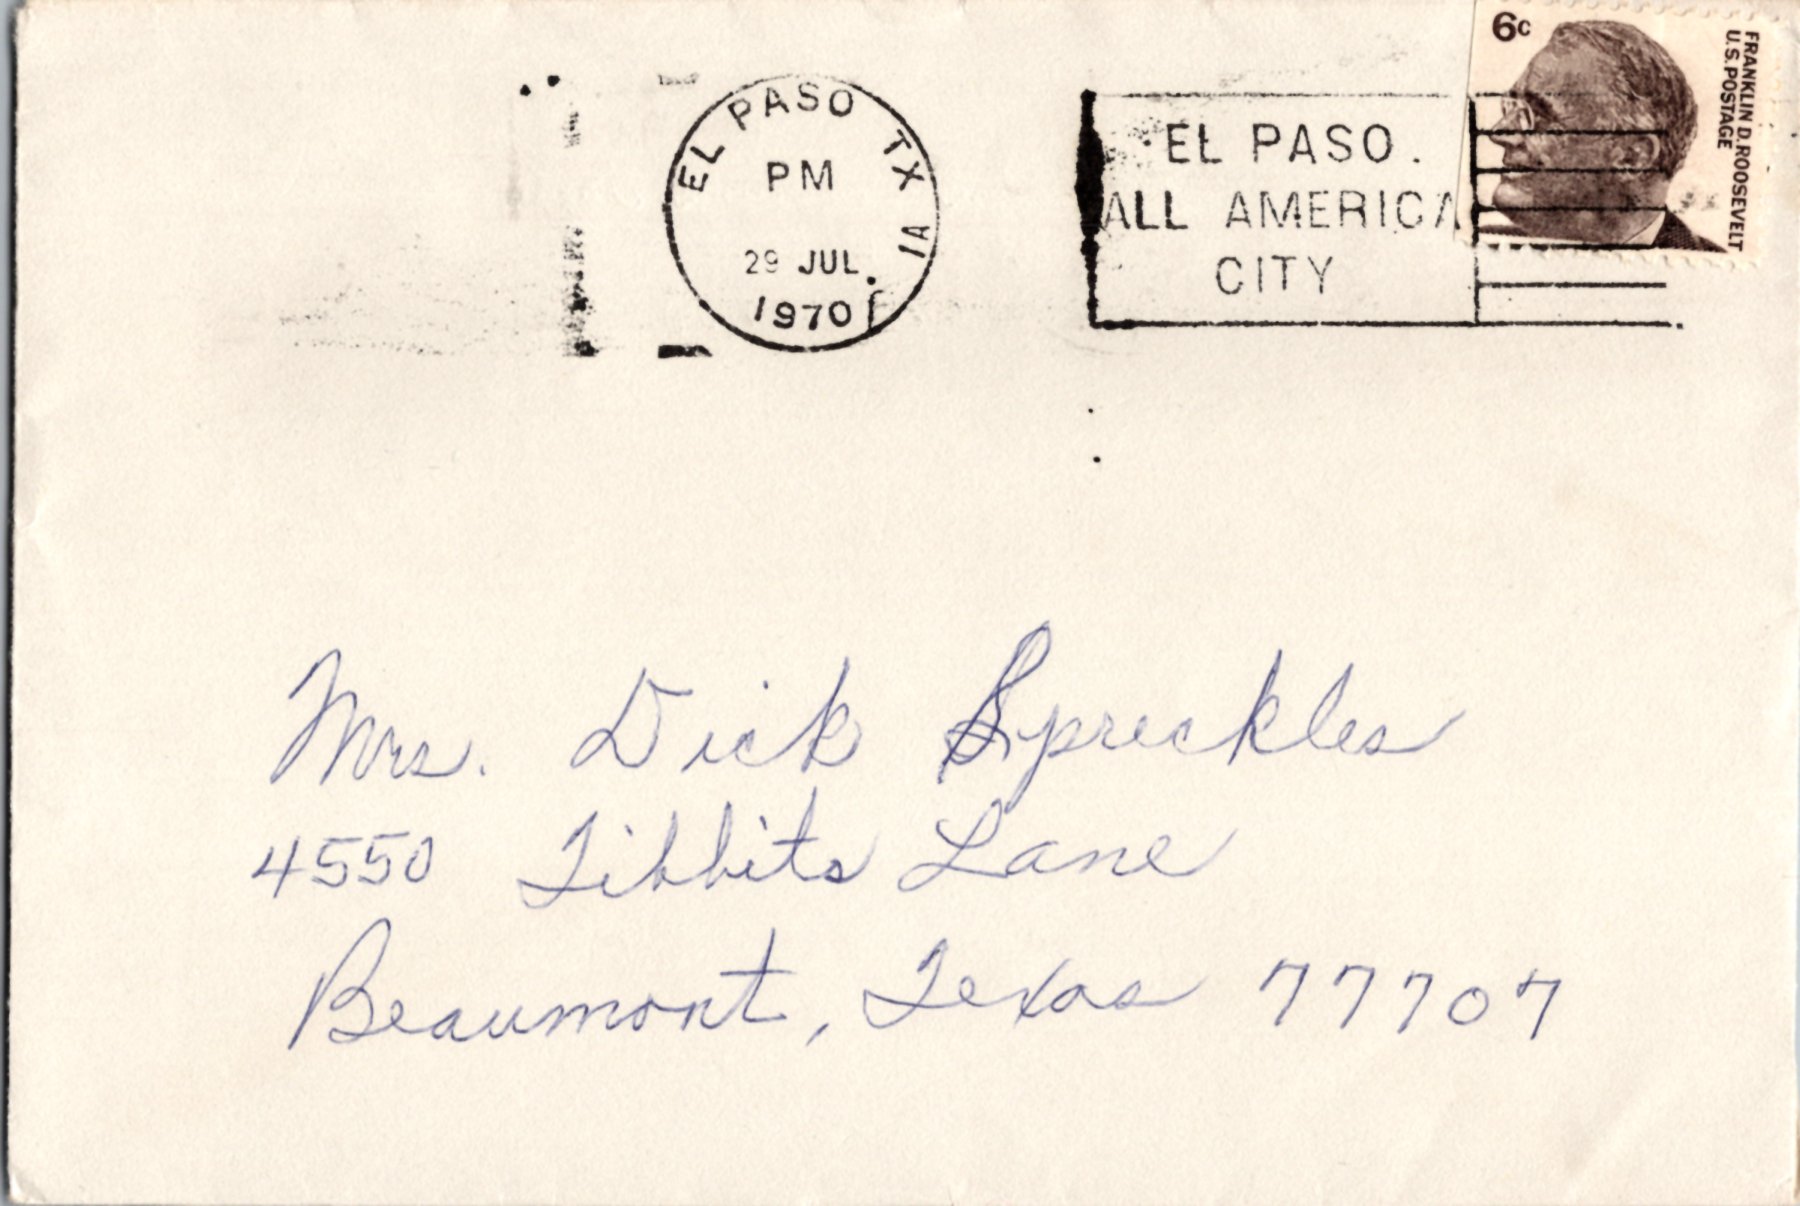 6c
FRANKLIN D. ROOSEVELT
U.S. POSTAGE
EL PASO TX
PM
29 JUL
1970
EL PASO.
ALL AMERICA
CITY
Mrs. Dick Spreckles
4550 Tibbits Lane
Beaumont, Texas 77707